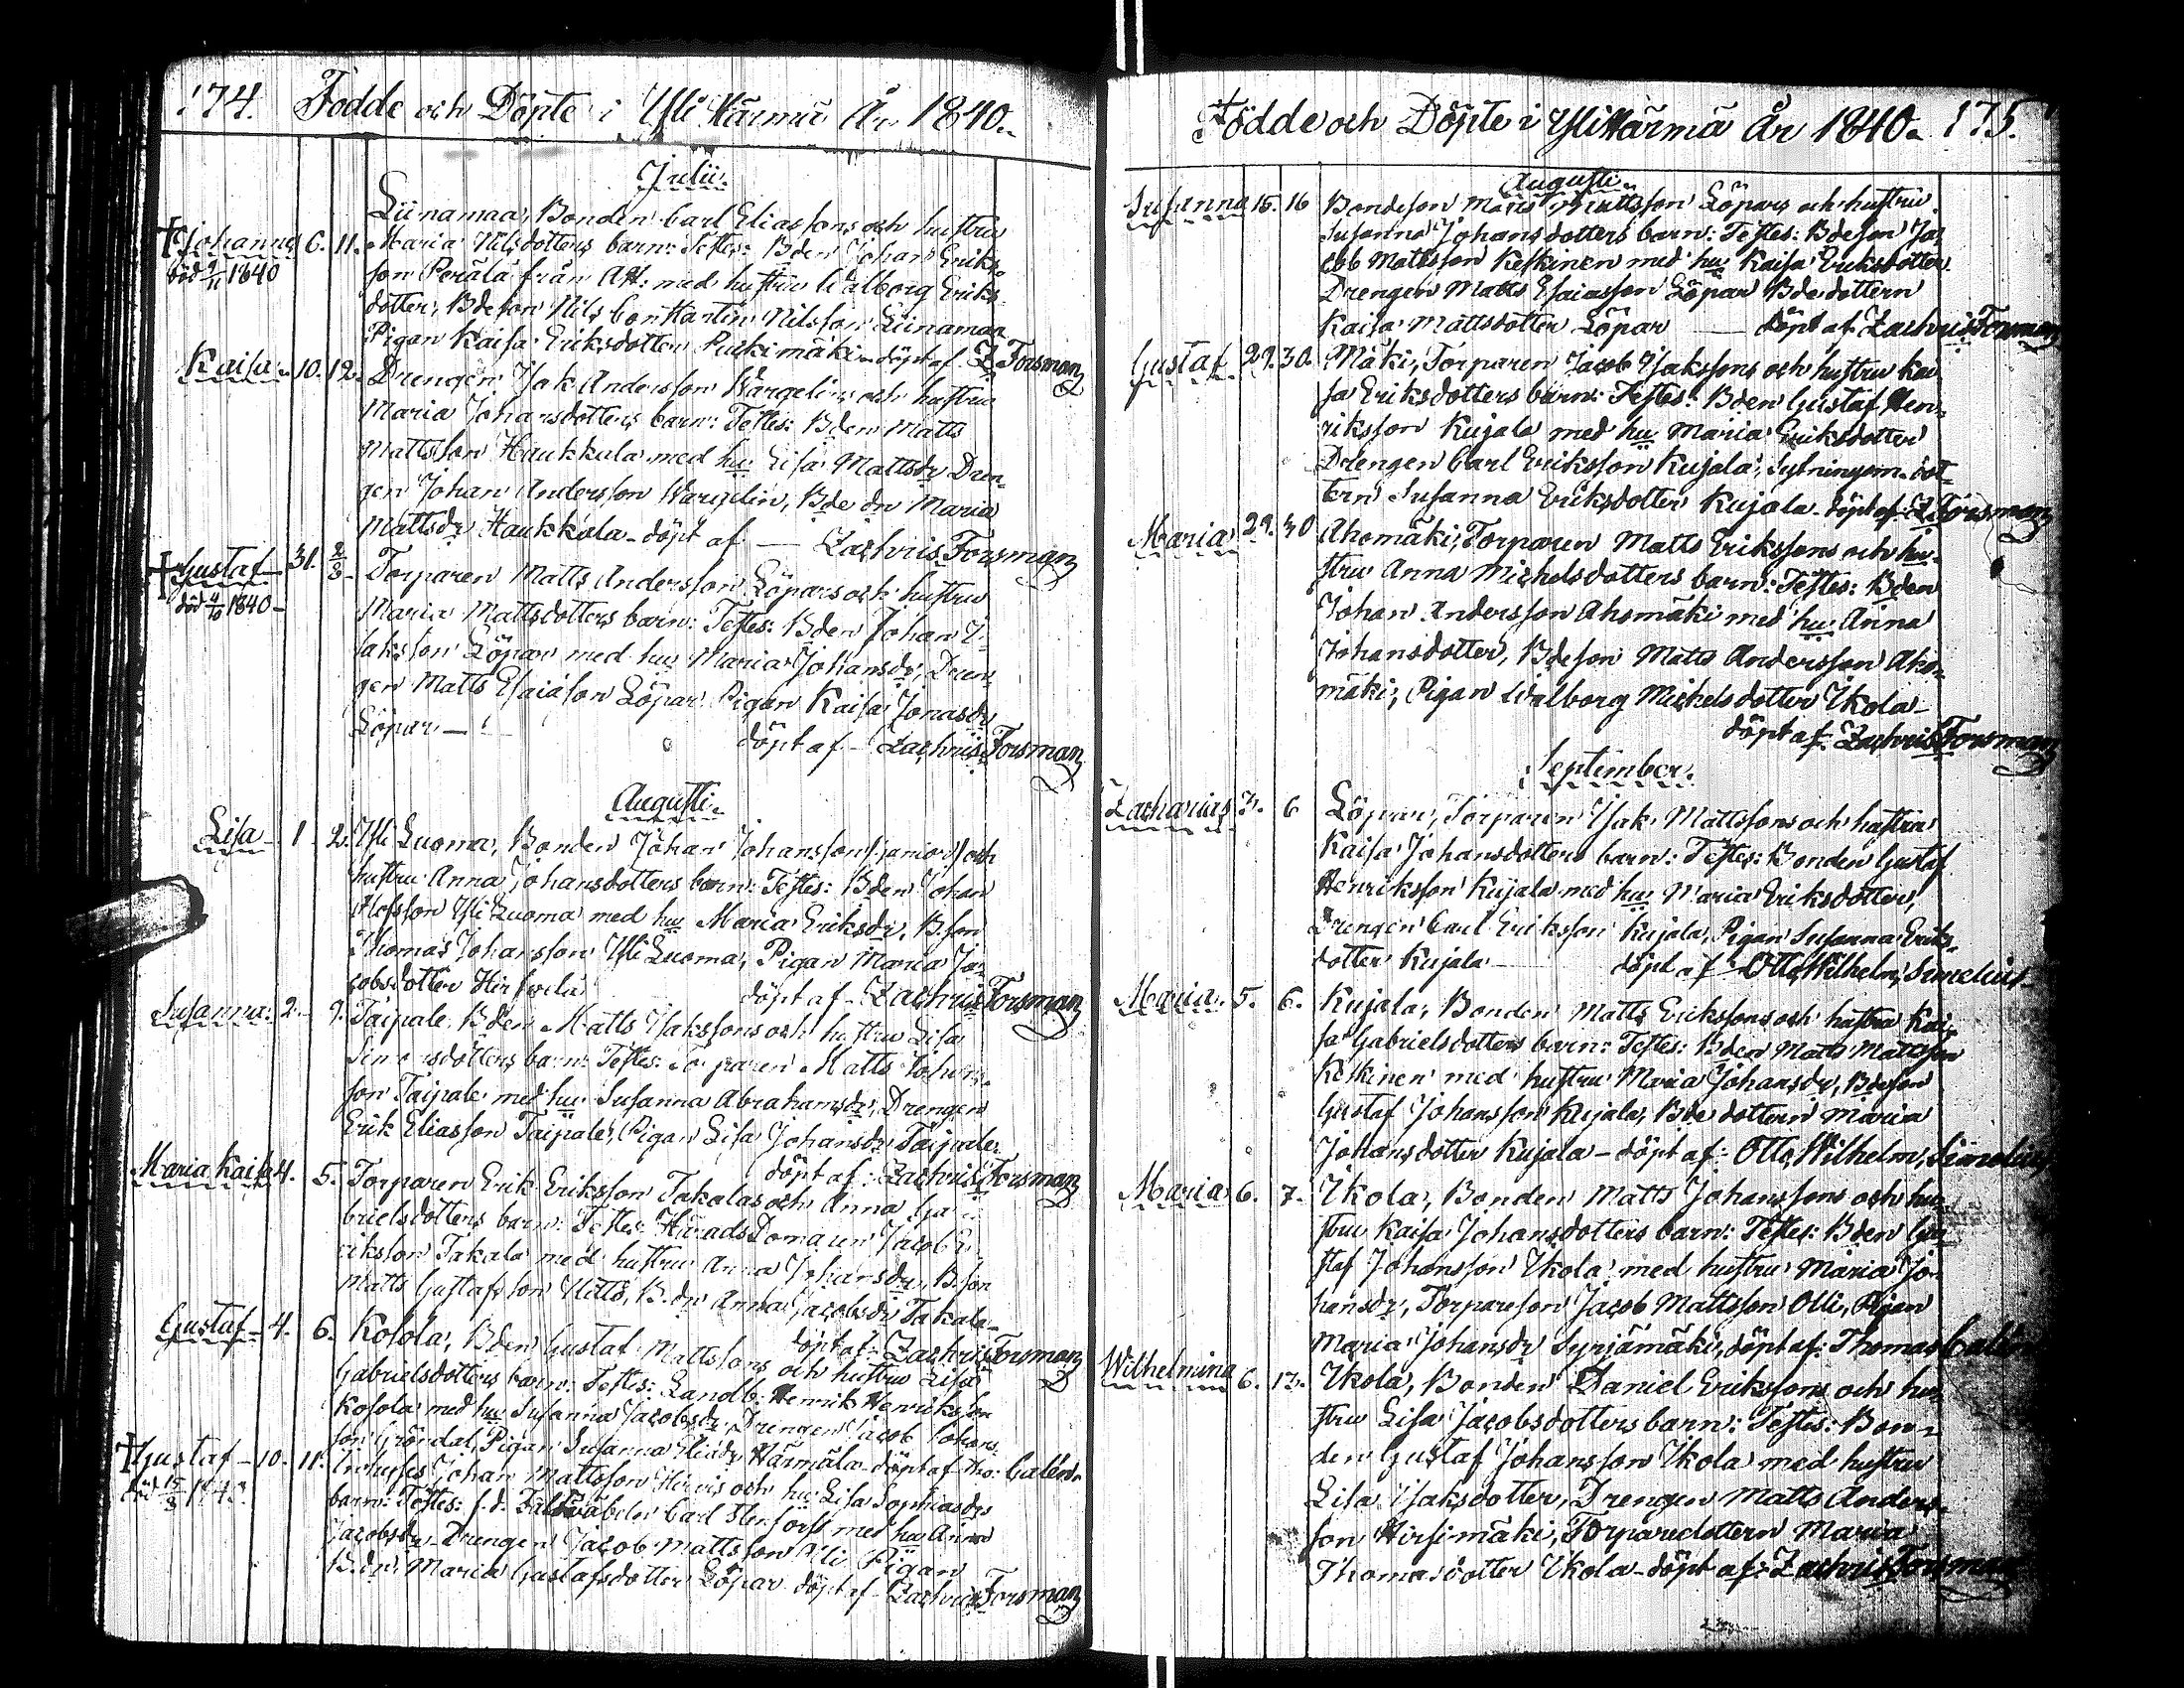 174. Födde och Döpte i Ylihärmä År 1840.
Julii.
Liinamaa, Bonden Carl Eliassons och hustru
†Johannes 6. 11. Maria Nilsdotters barn: Testes: Bden Johan Eriks-
död 9/11 1840 son Perälä från AH: med hustru Walborg Eriks
dotter, Bdeson Nils Constantin Nilsson Liinamaa
Pigan Kaisa Eriksdotter Puckimäki - döpt af Z. Forsman
Kaisa - 10. 12. Drengen Isak Andersson Wargelins och hustru
Maria Johansdotters barn: Testes: Bden Matts
Mattsson Haukkala med hu Lisa Mattsdr Dren-
gen Johan Andersson Wargelin, Bde dr Maria
Mattsdr Haukkala - döpt af — Zachris Forsman
†Gustaf - 31. 2/8 - Torparen Matts Andersson Löpars och hustru
död 4/10 1840 - Maria Mattsdotters barn: Testes: Bden Johan I-
saksson Löpar med hu Maria Johansdr, Dren-
gen Matts Esaiason Löpar Pigan Kaisa Jonasdr
Löpar — döpt af - Zachris Forsman
Augusti.
Lisa - 1 - 2. Yli Luoma, Bonden Johan Johansson (junior) och
hustru Anna Johansdotters barn: Testes: Bden Johan
Olofsson Yli Luoma med hu Maria Eriksdr, Bson
Thomas Johansson Yli Luoma, Pigan Maria Ja-
cobsdotter Hirfvelä döpt af - Zachris Forsman
Susanna. 2. - 9. Taipale Bden Matts Isakssons och hustru Lisa
Simonsdotters barn: Testes: Torparen Matts Johans-
son Taipale med hu Susanna Abrahamsdr, Drengen
Erik Eliasson Taipale, Pigan Lisa Johansdr Taipale.
döpt af: Zachris Forsman
Maria Kaisa 4. 5. Torparen Erik Eriksson Takalas och Anna Ga-
brielsdotters barn: Testes: HäradsDomaren Jacob E-
riksson Takala med hustru Anna Johansdr, Bson
Matts Gustafsson Uitto, B.dr Anna Jacobsdr Takala -
döpt af: Zachris Forsman
Gustaf - 4. 6. Kosola, Bden Gustaf Mattssons och hustru Lisa
Gabrielsdotters barn: Testes: Landtb: Henrik Henriksson
Kosola med hu Susanna Jacobsdr, Drengen Jacob Johans
son Gröndal, Pigan Susanna Eliädr Härmälä - döpt af Tho: Calén.
†Gustaf - 10. 11. Inhyses Johan Mattsson Hirvis och hu Lisa Sophiasdrs
barn: Testes: f.d. Fältväbeln Carl Stenfors med hu Anna
Jacobsdr, Drengen Jacob Mattsson Yli Pigan
B.dr Maria Gustafsdotter Löpar döpt af - Zachris Forsman
Födde och Döpte i Ylihärmä År 1840. 175.
Augusti.
Susanna 15. 16 Bondeson Matts Mattsson Löpars och hustru
Susanna Johansdotters barn: Testes: Bdeson Ja-
cob Mattsson Keskinen med hu Kaisa Eriksdotter
Drengen Matts Esaiasson Löpar Bde dottern
Kaisa Mattsdotter Löpar — döpt af Zachris Forsman
Gustaf 29. 30. Mäki, Torparen Jacob Isakssons och hustru Kai-
sa Eriksdotters barn: Testes: Bden Gustaf Hen-
riksson Kujala med hu Maria Eriksdotter
Drengen Carl Eriksson Kujala, Sytningsm. dot-
tern Susanna Eriksdotter Kujala - döpt af Z. Forsman
Maria 29. 30 Ahomäki, Torparen Matts Erikssons och hu-
stru Anna Michelsdotters barn: Testes: Bden
Johan Andersson Ahomäki med hu Anna
Johansdotter, Bdeson Matts Andersson Aho-
mäki, Pigan Walborg Michelsdotter Ikola -
döpt af: Zachris Forsman
September.
Zacharias 3. 6 Löpar, Torparen Isak Mattssons och hustru
Kaisa Johansdotters barn: Testes: Bonden Gustaf
Henriksson Kujala med hu Maria Eriksdotter,
Drengen Carl Eriksson Kujala, Pigan Susanna Eriks-
dotter Kujala — döpt af Otto Wilhelm Simelius -
Maria 5. 6. Kujala, Bonden Matts Erikssons och hustru Kai-
sa Gabrielsdotters barn: Testes: Bden Matts Mattsson
Keskinen med hustru Maria Johansdr, Bdeson
Gustaf Johansson Kujala, Bde dottern Maria
Johansdotter Kujala - döpt af: Otto Wilhelm Simelius
Maria 6. 7. Ikola, Bonden Matts Johanssons och hu-
stru Kaisa Johansdotters barn: Testes: Bden Gu-
staf Johansson Ikola med hustru Maria Jo-
hansdr, Torpareson Jacob Mattsson Olli, Pigan
Maria Johansdr Syrjämäki, döpt af: Thomas Calén
Wilhelmina 6. 13. Ikola, Bonden Daniel Erikssons och hu-
stru Lisa Jacobsdotters barn: Testes: Bon-
den Gustaf Johansson Ikola med hustru
Lisa Isaksdotter, Drengen Matts Anders-
son Hirsimäki, Torparedottern Maria
Thomasdotter Ikola - döpt af: Zachris Forsman